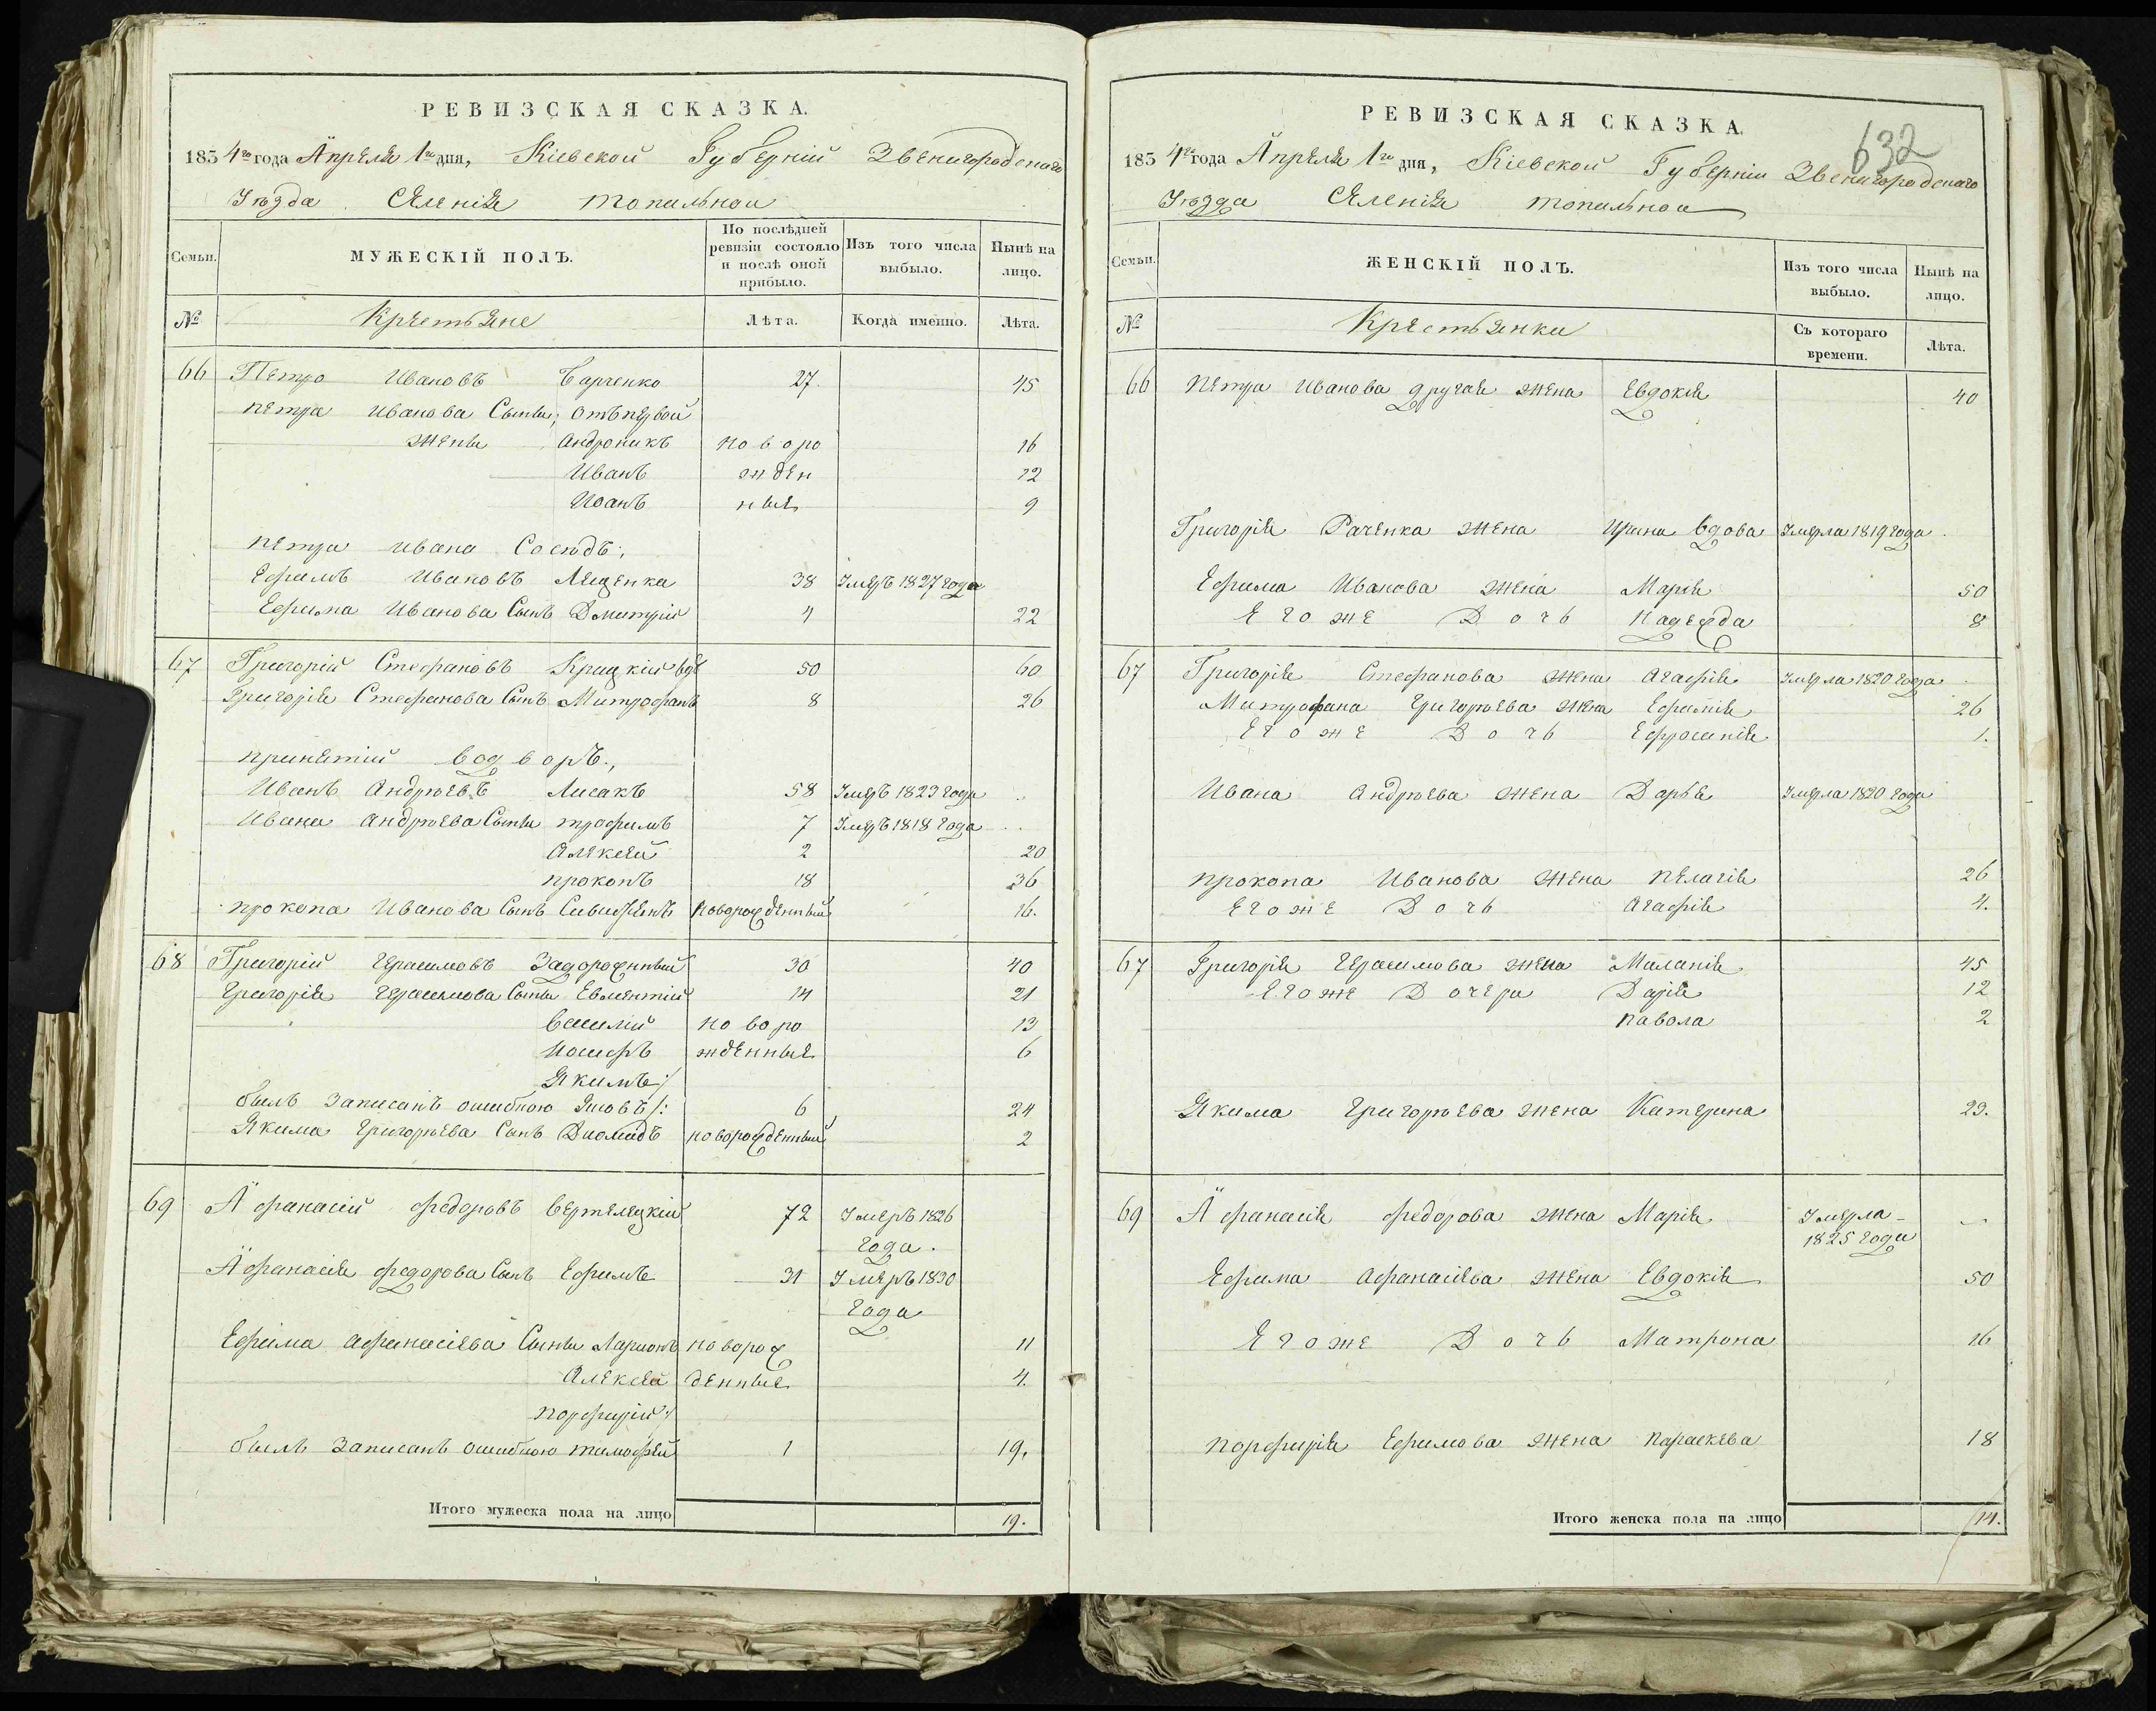 РЕВИЗСКАЯ СКАЗКА.
1834го года Апреля 1го дня, Кіевской Губерніи Звенигородскаго
Уѣзда Селенія топильной
Семьи.
МУЖЕСКІЙ ПОЛЪ.
По послѣдней ревизіи состояло и послѣ оной прибыло.
Изъ того числа выбыло.
Нынѣ на лицо.
№
Крестьяне
Лѣта.
Когда именно.
Лѣта.
66 Петро Ивановъ 27. 45
петра иванова Сыны, отъ первой
жены андроникъ новоро 16
Иванъ жден 12
Иоанъ ные 9
петра ивана Соседъ:,
Ефимъ Ивановъ Лещенка 38 Умеръ 1827 года
Ефима Иванова Сынъ Дмитрій 4 22
67 Григорій Стефановъ Крицкій вдв 50 60
Григорія Стефанова Сынъ Митрофанъ 8 26
принятій вод воръ.,
Иванъ Андрѣевъ Лисакъ 58 Умеръ 1823 года
Ивана андрѣева Сыны трофимъ 7 Умеръ 1818 года
Алексей 2 20
прокопъ 18 36
прокопа Иванова Сынъ новорожденный 16.
68 Григорій Герасимовъ Задорожнный 30 40
Григорія Герасимова Сыны Евментій 14 21
василій новоро 13
Иосифъ жденные 6
Якимъ:/
былъ записанъ ошибкою 6 24
Якима Григорьева Сынъ Диомидъ новорожденный 2
69 Афанасій федоровъ вертелецкій 72 Умеръ 1826
года.
Афанасія федорова Сынъ Ефимъ 31 Умеръ 1830
года
Ефима афанасіева Сыны Ларионъ оворож 11
Алексей денные 4.
порфирій:/
былъ записанъ ошибкою тимофей 1 19,
Итого мужеска пола на лицо 19.
РЕВИЗСКАЯ СКАЗКА.
632
1834го года Апреля 1го дня, Кіевской Губерніи Звенигородскаго
Уѣзда Селенія топильной
Семьи.
ЖЕНСКІЙ ПОЛЪ.
Изъ того числа выбыло.
Нынѣ на лицо.
№
Крестьянки
Съ котораго времени.
Лѣта.
66 петра иванова другая жена Евдокія 40
Григорія Раченка жена Ирина вдова Умерла 1819 года
Ефима Иванова жена Марія 50
Егоже Дочь Надежда 8
67 Григорія Стефанова жена агафія Умерла 1820 года
Митрофана Григорьева жена Ефимія 26
Егоже Дочь Ефросинія 1.
Ивана андрѣева жена Дарья Умерла 1820 года
прокопа Иванова жена пелагія 26
Егоже Дочь агафія 4.
67 Григорія Герасимова жена Маланія 45
Егоже Дочери Дарія 12
павола 2
Якима Григорьева жена Катерина 23.
69 Афанасія федорова жена Марія Умерла
1825 года
Ефима афанасіева жена Евдокія 50
Егоже Дочь Матрона 16
порфирія Ефимова жена параскева 18
Итого женска пола на лицо 14.